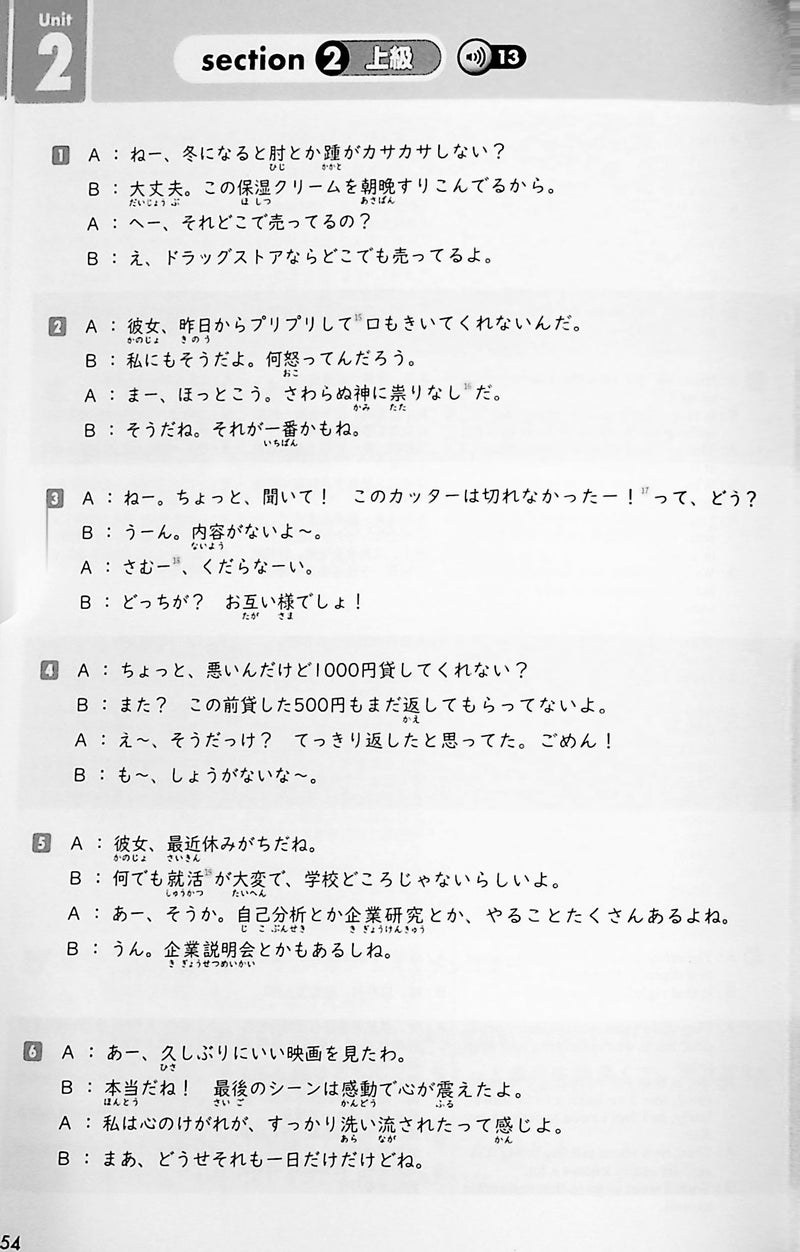 Unit
2
section 2 上級 13
1 A：ねー、冬になると肘とか踵がカサカサしない？
ひじ かかと
B：大丈夫。この保湿クリームを朝晩すりこんでるから。
だいじょうぶ ほしつ あさばん
A：へー、それどこで売ってるの？
B：え、ドラッグストアならどこでも売ってるよ。
2 A：彼女、昨日からプリプリして15口もきいてくれないんだ。
かのじょ きのう
B：私にもそうだよ。何怒ってんだろう。
おこ
A：まー、ほっとこう。さわらぬ神に祟りなし16だ。
かみ たた
B：そうだね。それが一番かもね。
いちばん
3 A：ねー。ちょっと、聞いて！ このカッターは切れなかったー！17って、どう？
B：うーん。内容がないよ〜。
ないよう
A：さむー18、くだらなーい。
B：どっちが？ お互い様でしょ！
たが さま
4 A：ちょっと、悪いんだけど1000円貸してくれない？
B：また？ この前貸した500円もまだ返してもらってないよ。
かえ
A：え〜、そうだっけ？ てっきり返したと思ってた。ごめん！
B：も〜、しょうがないな〜。
5 A：彼女、最近休みがちだね。
かのじょ さいきん
B：何でも就活19が大変で、学校どころじゃないらしいよ。
しゅうかつ たいへん
A：あー、そうか。自己分析とか企業研究とか、やることたくさんあるよね。
じこぶんせき きぎょうけんきゅう
B：うん。企業説明会とかもあるしね。
きぎょうせつめいかい
6 A：あー、久しぶりにいい映画を見たわ。
ひさ
B：本当だね！ 最後のシーンは感動で心が震えたよ。
ほんとう さいご かんどう ふる
A：私は心のけがれが、すっかり洗い流されたって感じよ。
あら なが かん
B：まあ、どうせそれも一日だけだけどね。
54